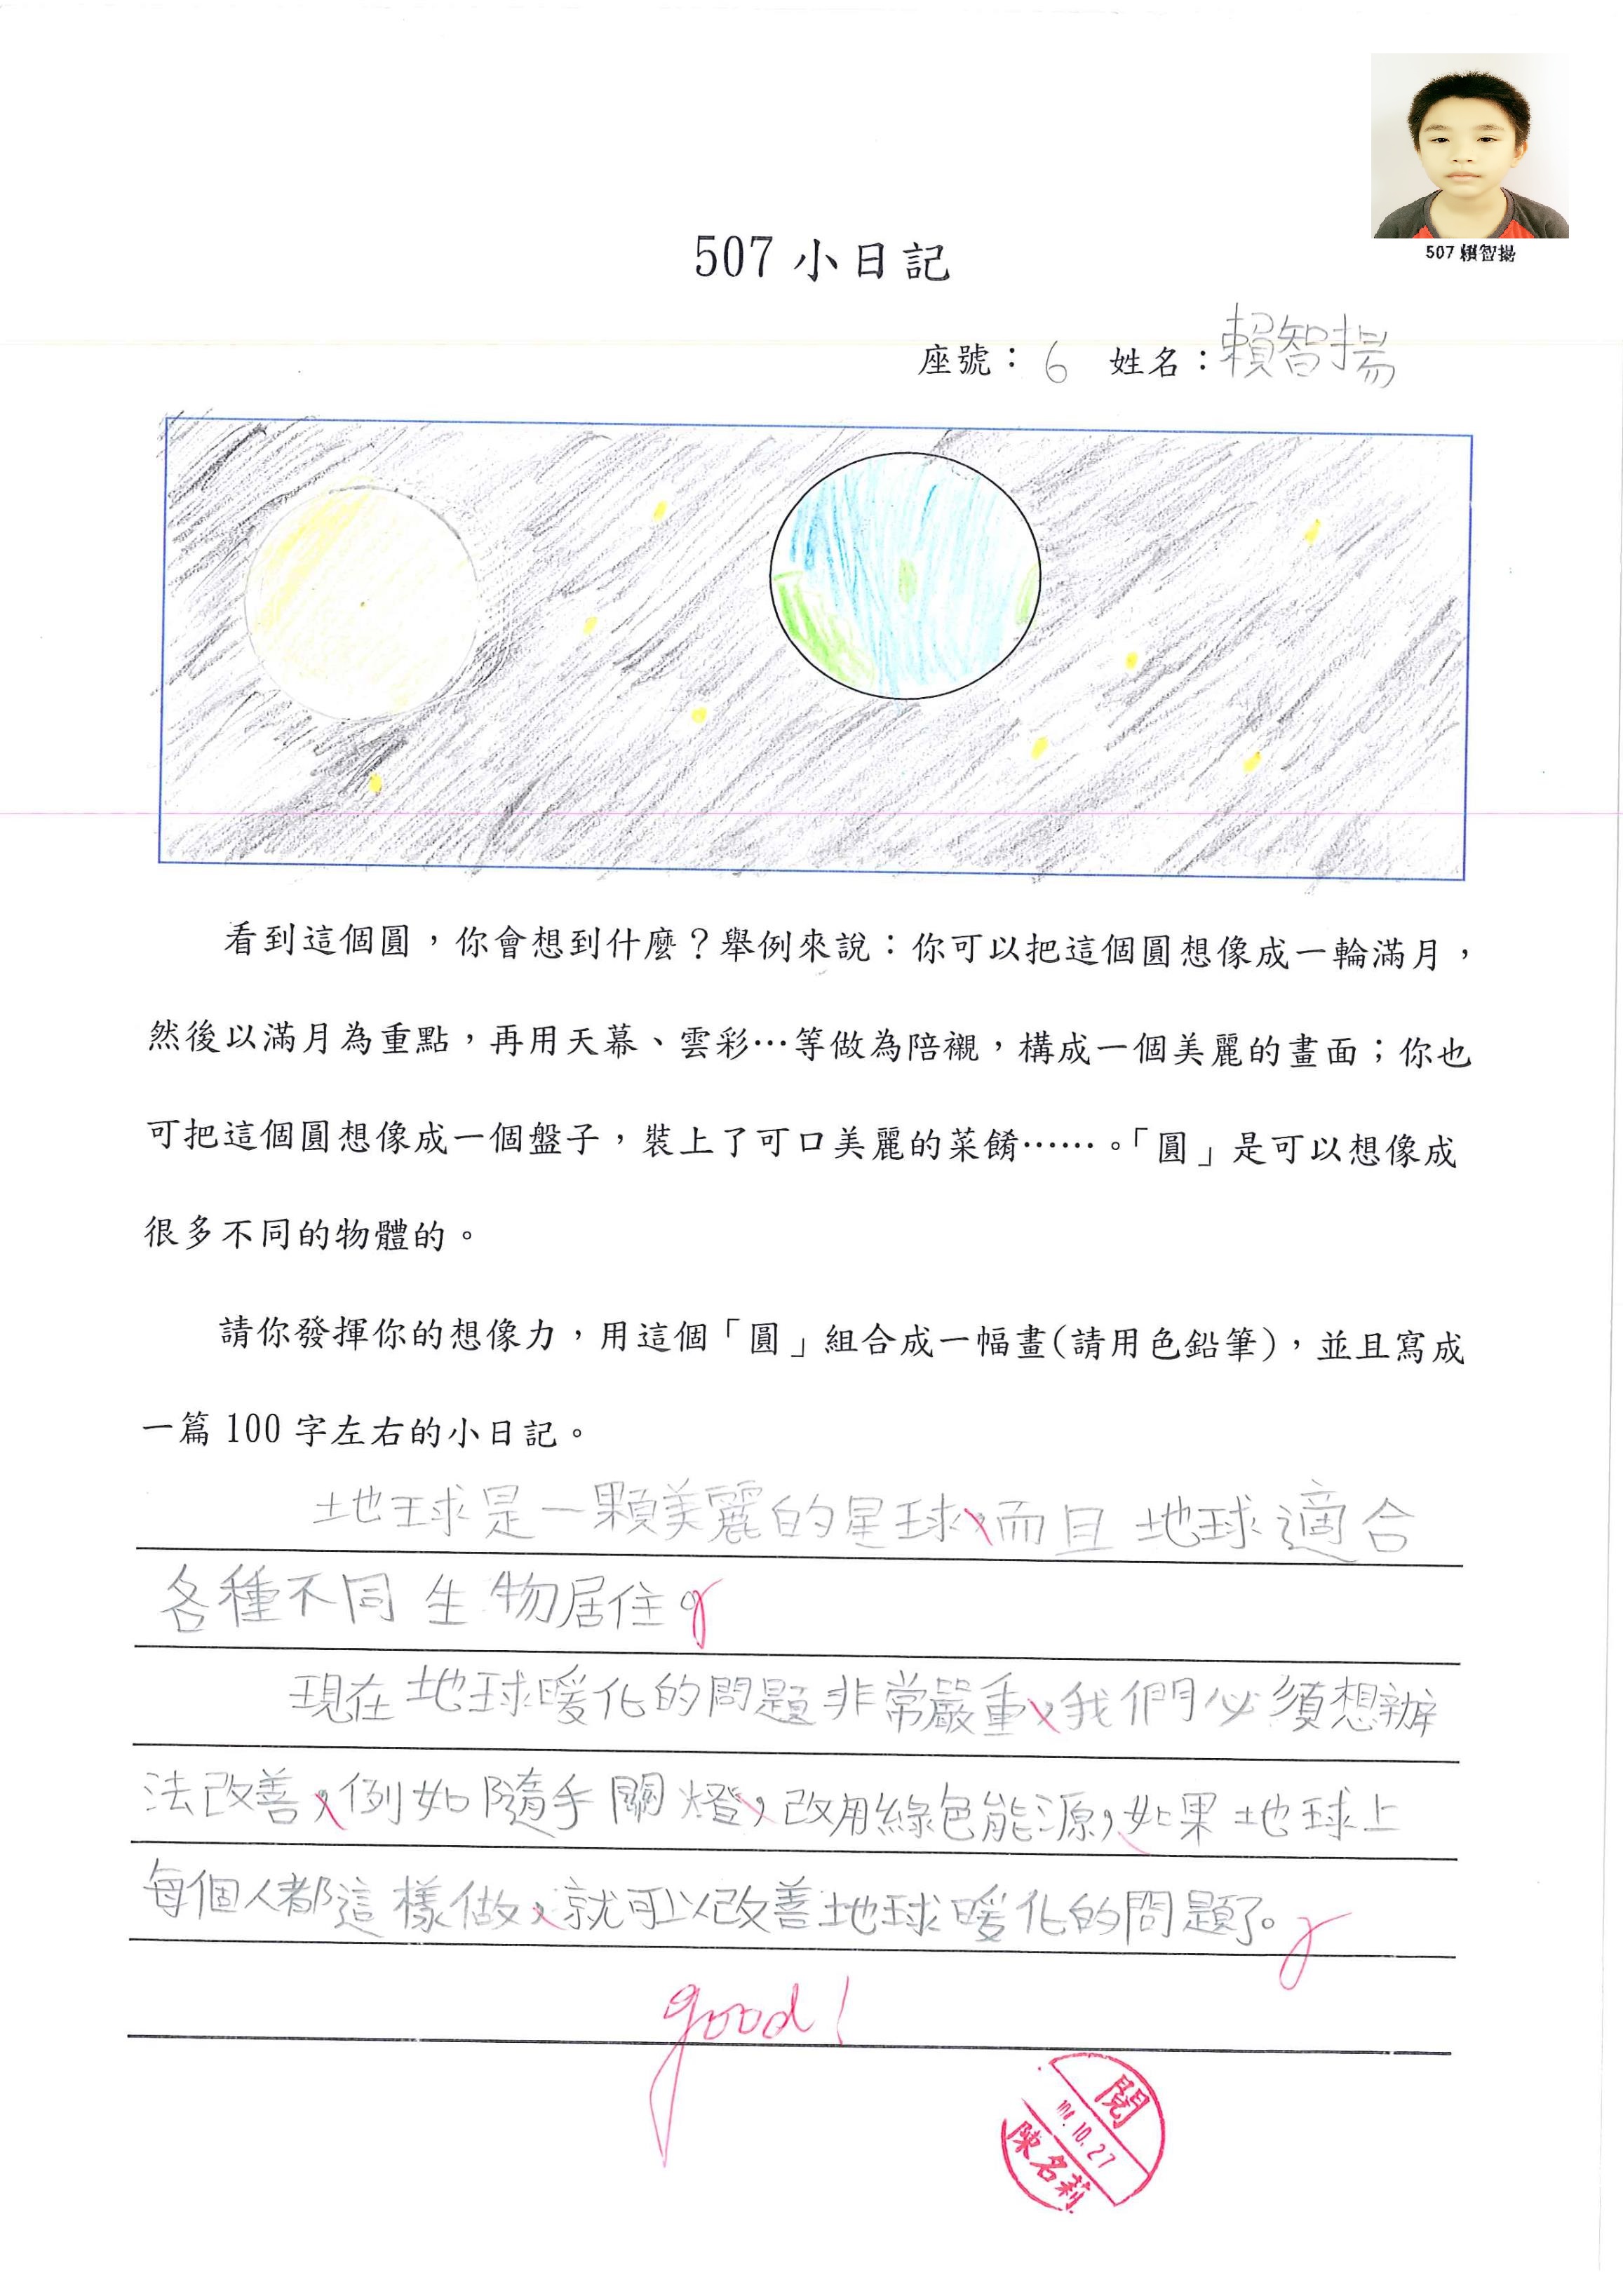 507 賴智揚
507 小日記
座號：6 姓名：賴智揚
看到這個圓，你會想到什麼？舉例來說：你可以把這個圓想像成一輪滿月，
然後以滿月為重點，再用天幕、雲彩…等做為陪襯，構成一個美麗的畫面；你也
可把這個圓想像成一個盤子，裝上了可口美麗的菜餚……。「圓」是可以想像成
很多不同的物體的。
請你發揮你的想像力，用這個「圓」組合成一幅畫(請用色鉛筆)，並且寫成
一篇 100 字左右的小日記。
地球是一顆美麗的星球，而且地球適合
各種不同生物居住。
現在地球暖化的問題非常嚴重，我們必須想辦
法改善，例如隨手關燈，改用綠色能源，如果地球上
每個人都這樣做，就可以改善地球暖化的問題了。
good!
閱
10.27
陳名莉